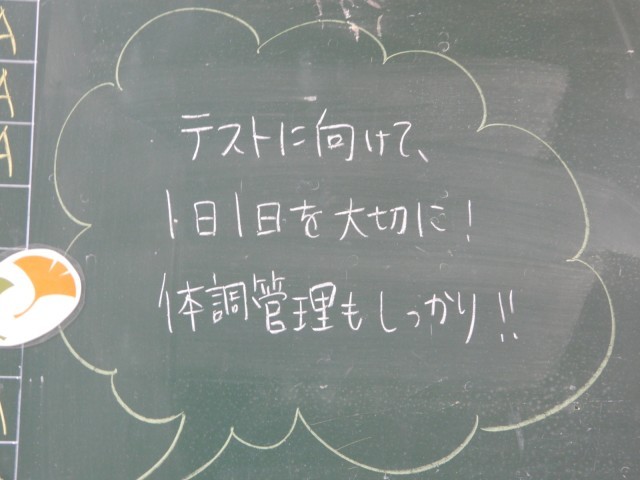 テストに向けて、
1日1日を大切に!
体調管理もしっかり!!
A
A
A